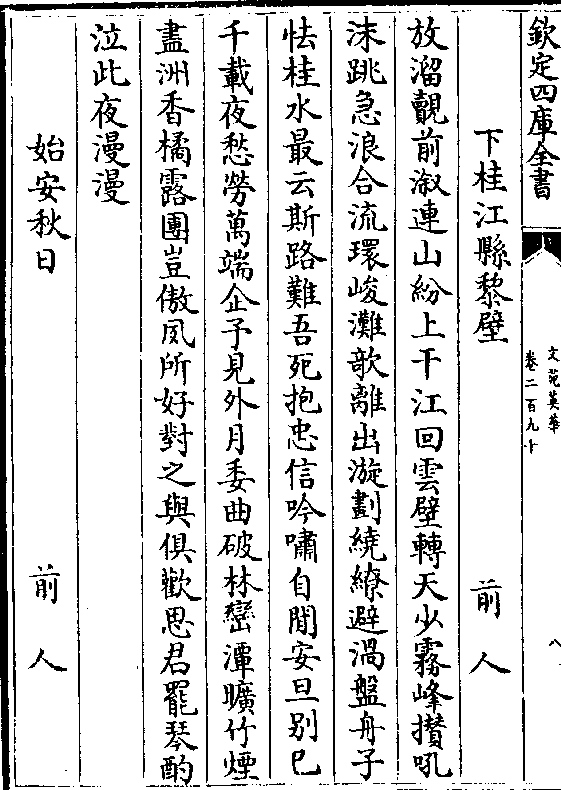 欽定四庫全書
文苑英華
卷二百九十
八
下桂江縣黎壁
前人
放溜覿前溆連山紛上干江回雲壁轉天少霧峰攅吼
沫跳急浪合流環峻灘欹離出漩劃繞繚避渦盤舟子
怯桂水最云斯路難吾死抱忠信吟嘯自閒安旦别已
千載夜愁勞萬端企予見外月委曲破林巒潭曠竹煙
盡洲香橘露團豈傲夙所好對之與俱歡思君罷琴酌
泣此夜漫漫
始安秋日
前人